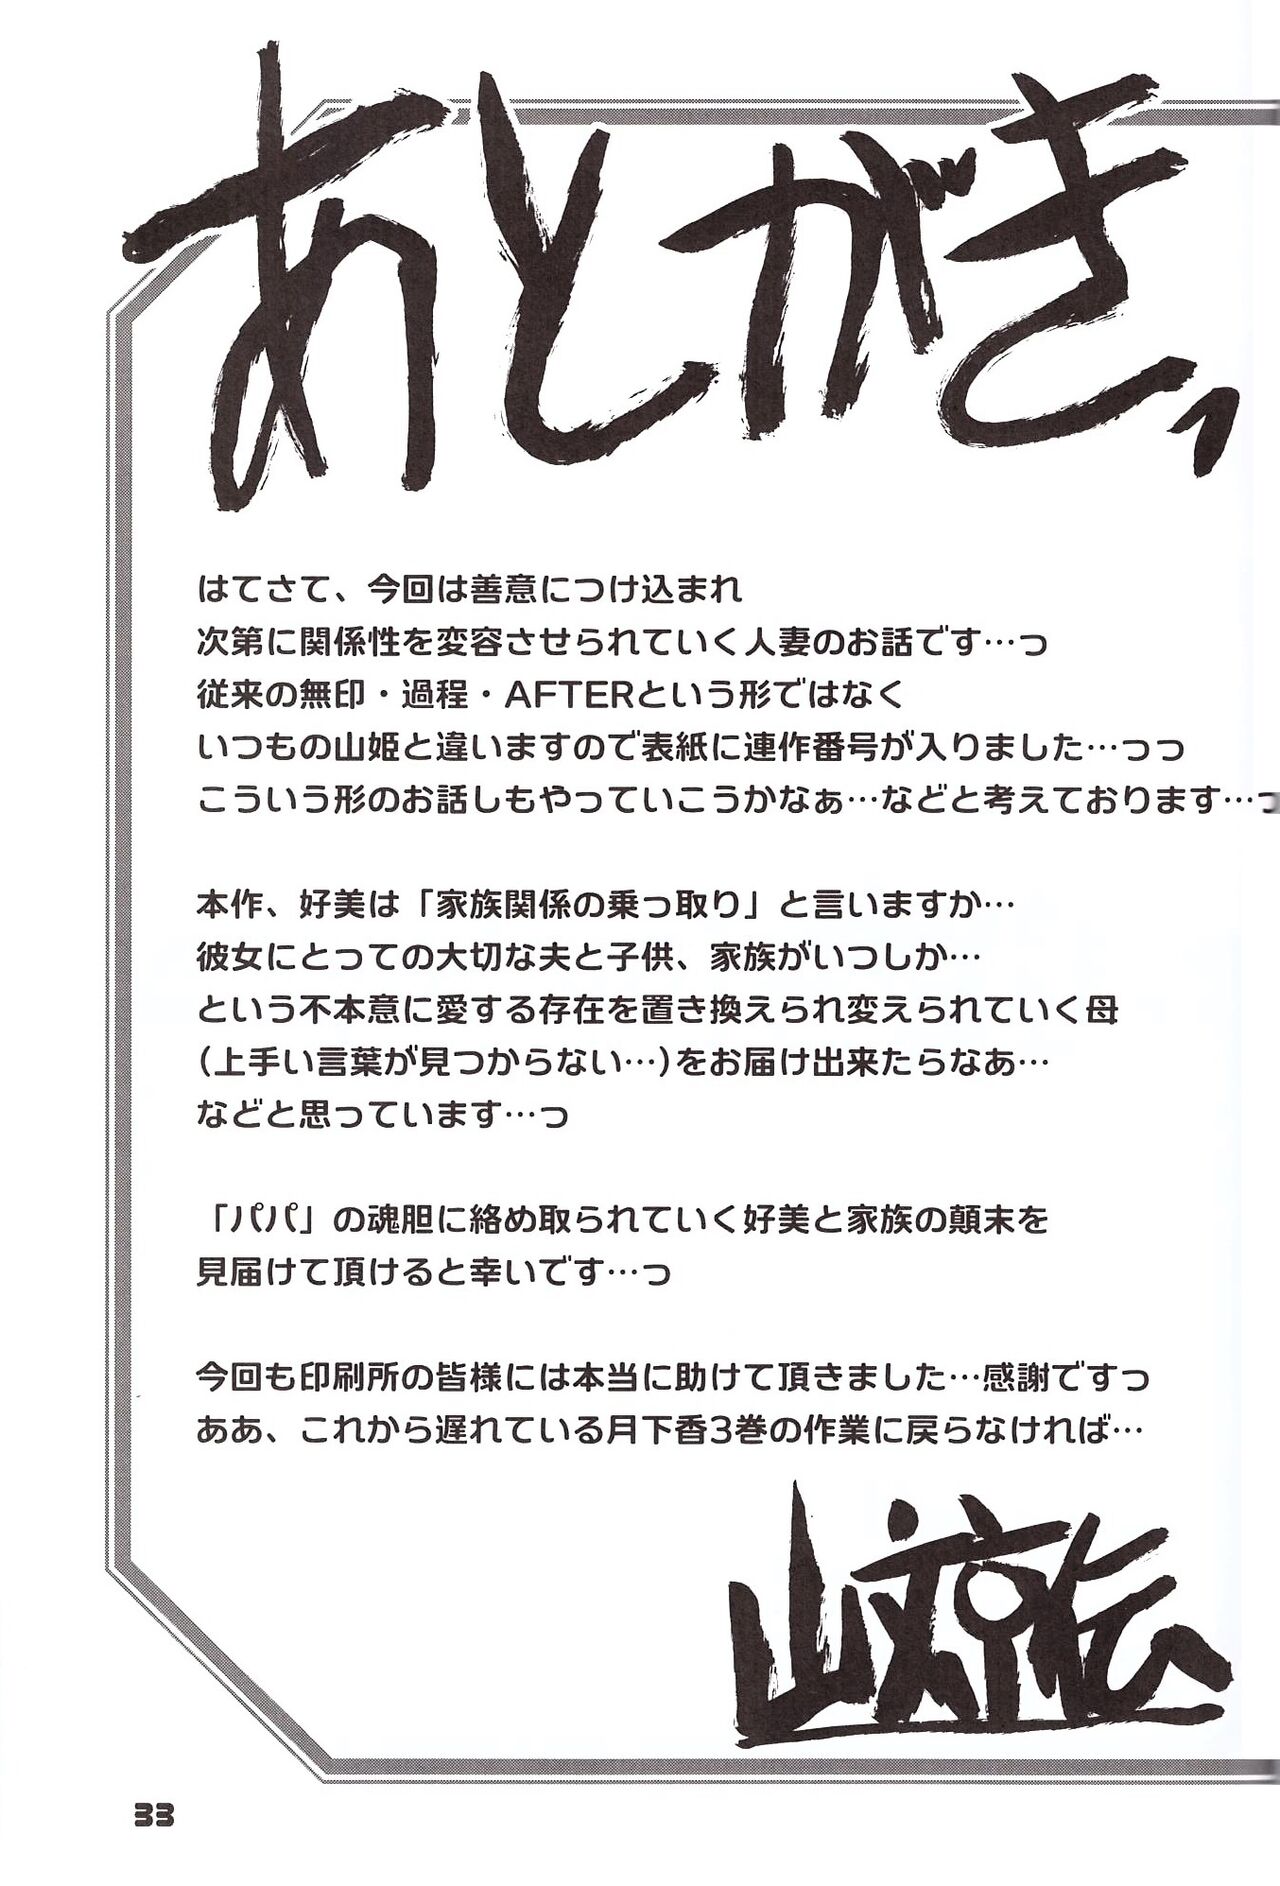 あとがきっ
はてさて、今回は善意につけ込まれ
次第に関係性を変容させられていく人妻のお話です…っ
従来の無印・過程・AFTERという形ではなく
いつもの山姫と違いますので表紙に連作番号が入りました…っっ
こういう形のお話しもやっていこうかなぁ…などと考えております…っ
本作、好美は「家族関係の乗っ取り」と言いますか…
彼女にとっての大切な夫と子供、家族がいつしか…
という不本意に愛する存在を置き換えられ変えられていく母
(上手い言葉が見つからない…)をお届け出来たらなあ…
などと思っています…っ
「パパ」の魂胆に絡め取られていく好美と家族の顛末を
見届けて頂けると幸いです…っ
今回も印刷所の皆様には本当に助けて頂きました…感謝ですっ
ああ、これから遅れている月下香3巻の作業に戻らなければ…
33